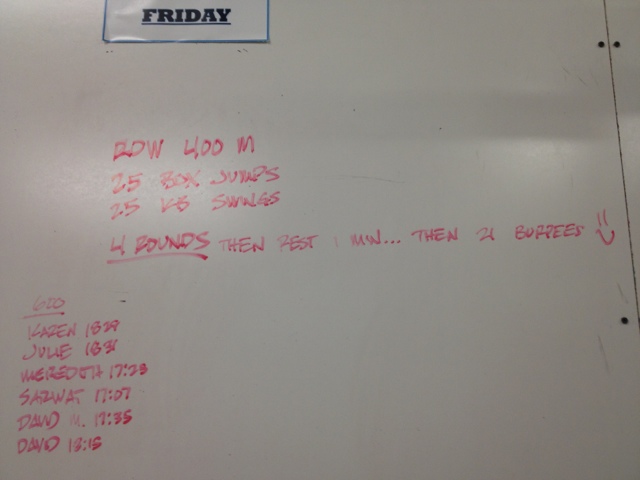 FRIDAY
ROW 400 M
25 BOX JUMPS
25 KB SWINGS
4 ROUNDS THEN REST 1 MIN... THEN 21 BURPEES
600
KAREN 18:29
JULIE 18:31
MEREDITH 17:23
SARWAT 17:07
DAVID M. 17:35
DAVID 13:15